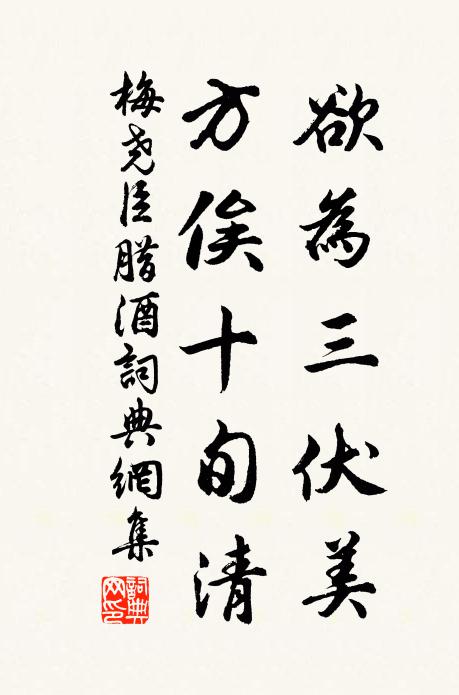 欲為三伏美
方俟十旬清
梅尧臣腊酒詞典網集
詞典网印